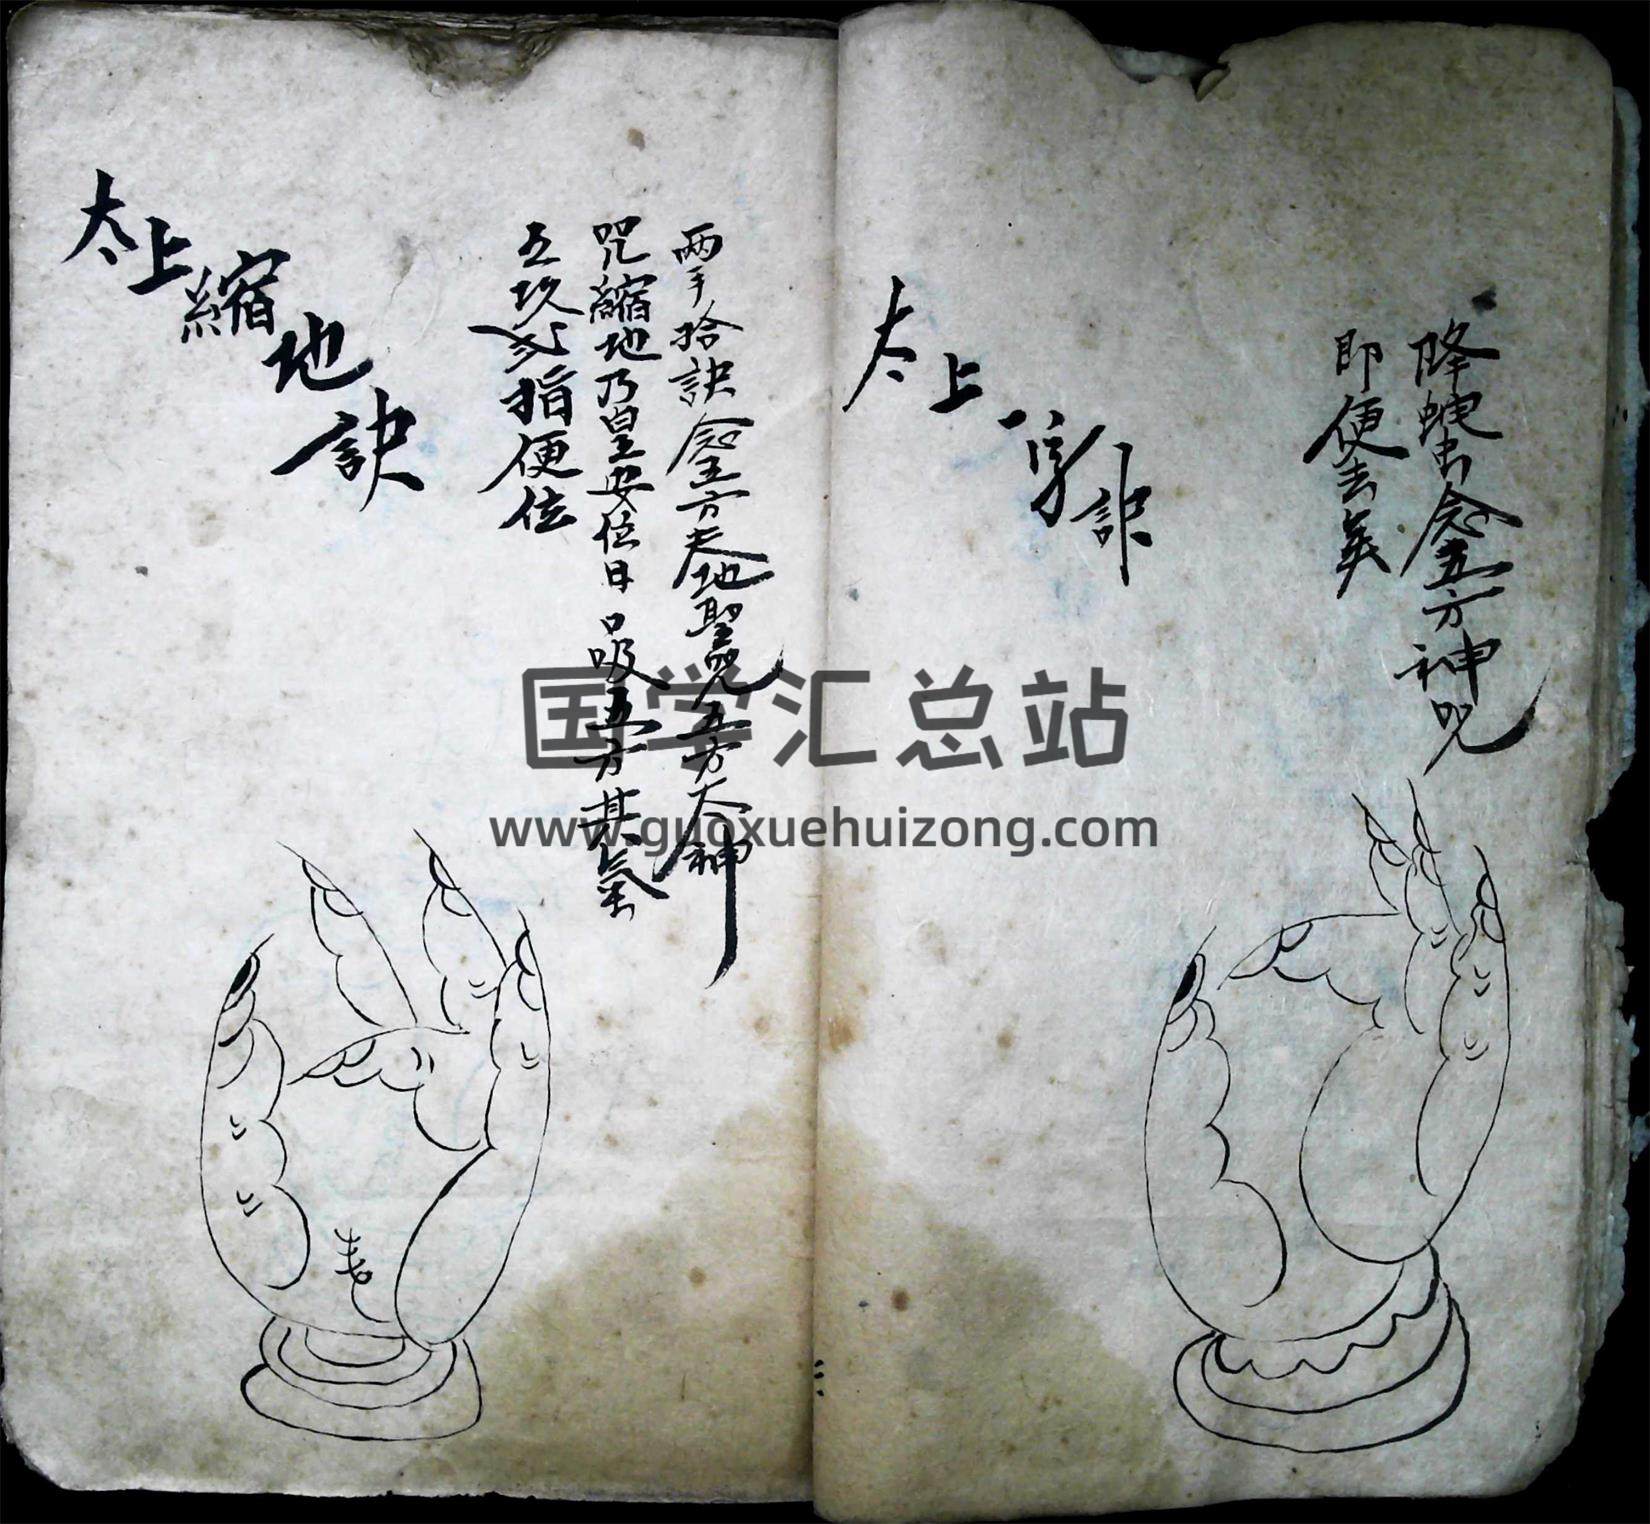 降蝗虫念五方神咒
即便去矣
太上一字訣
两手拾訣念五方天地聖咒五方大神
咒縮地乃皇安位日口吸五方其氣
五玖 指便位
太上縮地訣
国学汇总站
www.guoxuehuizong.com